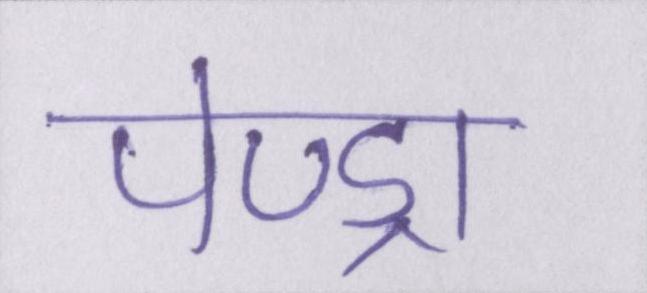 पेण्ड्रा